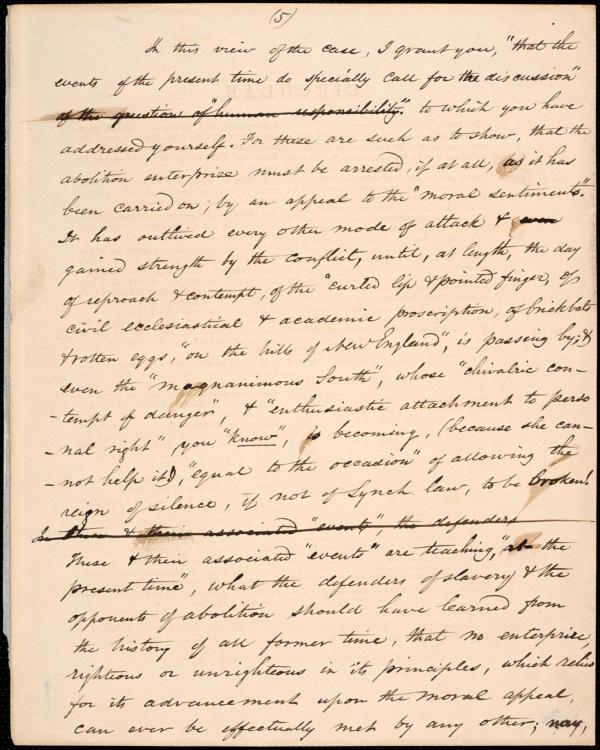 (5)
In this view of the case, I grant you, "that the
events of the present time do specially call for the discussion"
of the question of "human responsibility." to which you have
addressed yourself. For these are such as to show, that the
abolition enterprize must be arrested, if at all, as it has
been carried on, by an appeal to the "moral sentiments".
It has outlived every other mode of attack & even
gained strength by the conflict, until, at length, the day
of reproach & contempt, of the "curled lip & pointed finger, of
civil ecclesiastical & academic proscription, of brickbats
& rotten eggs, "on the hills of New England", is passing by; &
even the "magnanimous South", whose "chivalric con-
-tempt of danger", & "enthusiastic attachment to perso
-nal right" you "know", is becoming, (because she can-
-not help it), "equal to the occasion" of allowing the
reign of silence, if not of Lynch law, to be broken!
In these & their associated "events", the defenders
These & their associated "events" are teaching, "at the
present time", what the defenders of slavery & the
opponents of abolition should have learned from
the history of all former time, that no enterprize,
righteous or unrighteous in its principles, which relies
for its advancement upon the moral appeal,
can ever be effectually met by any other; nay,